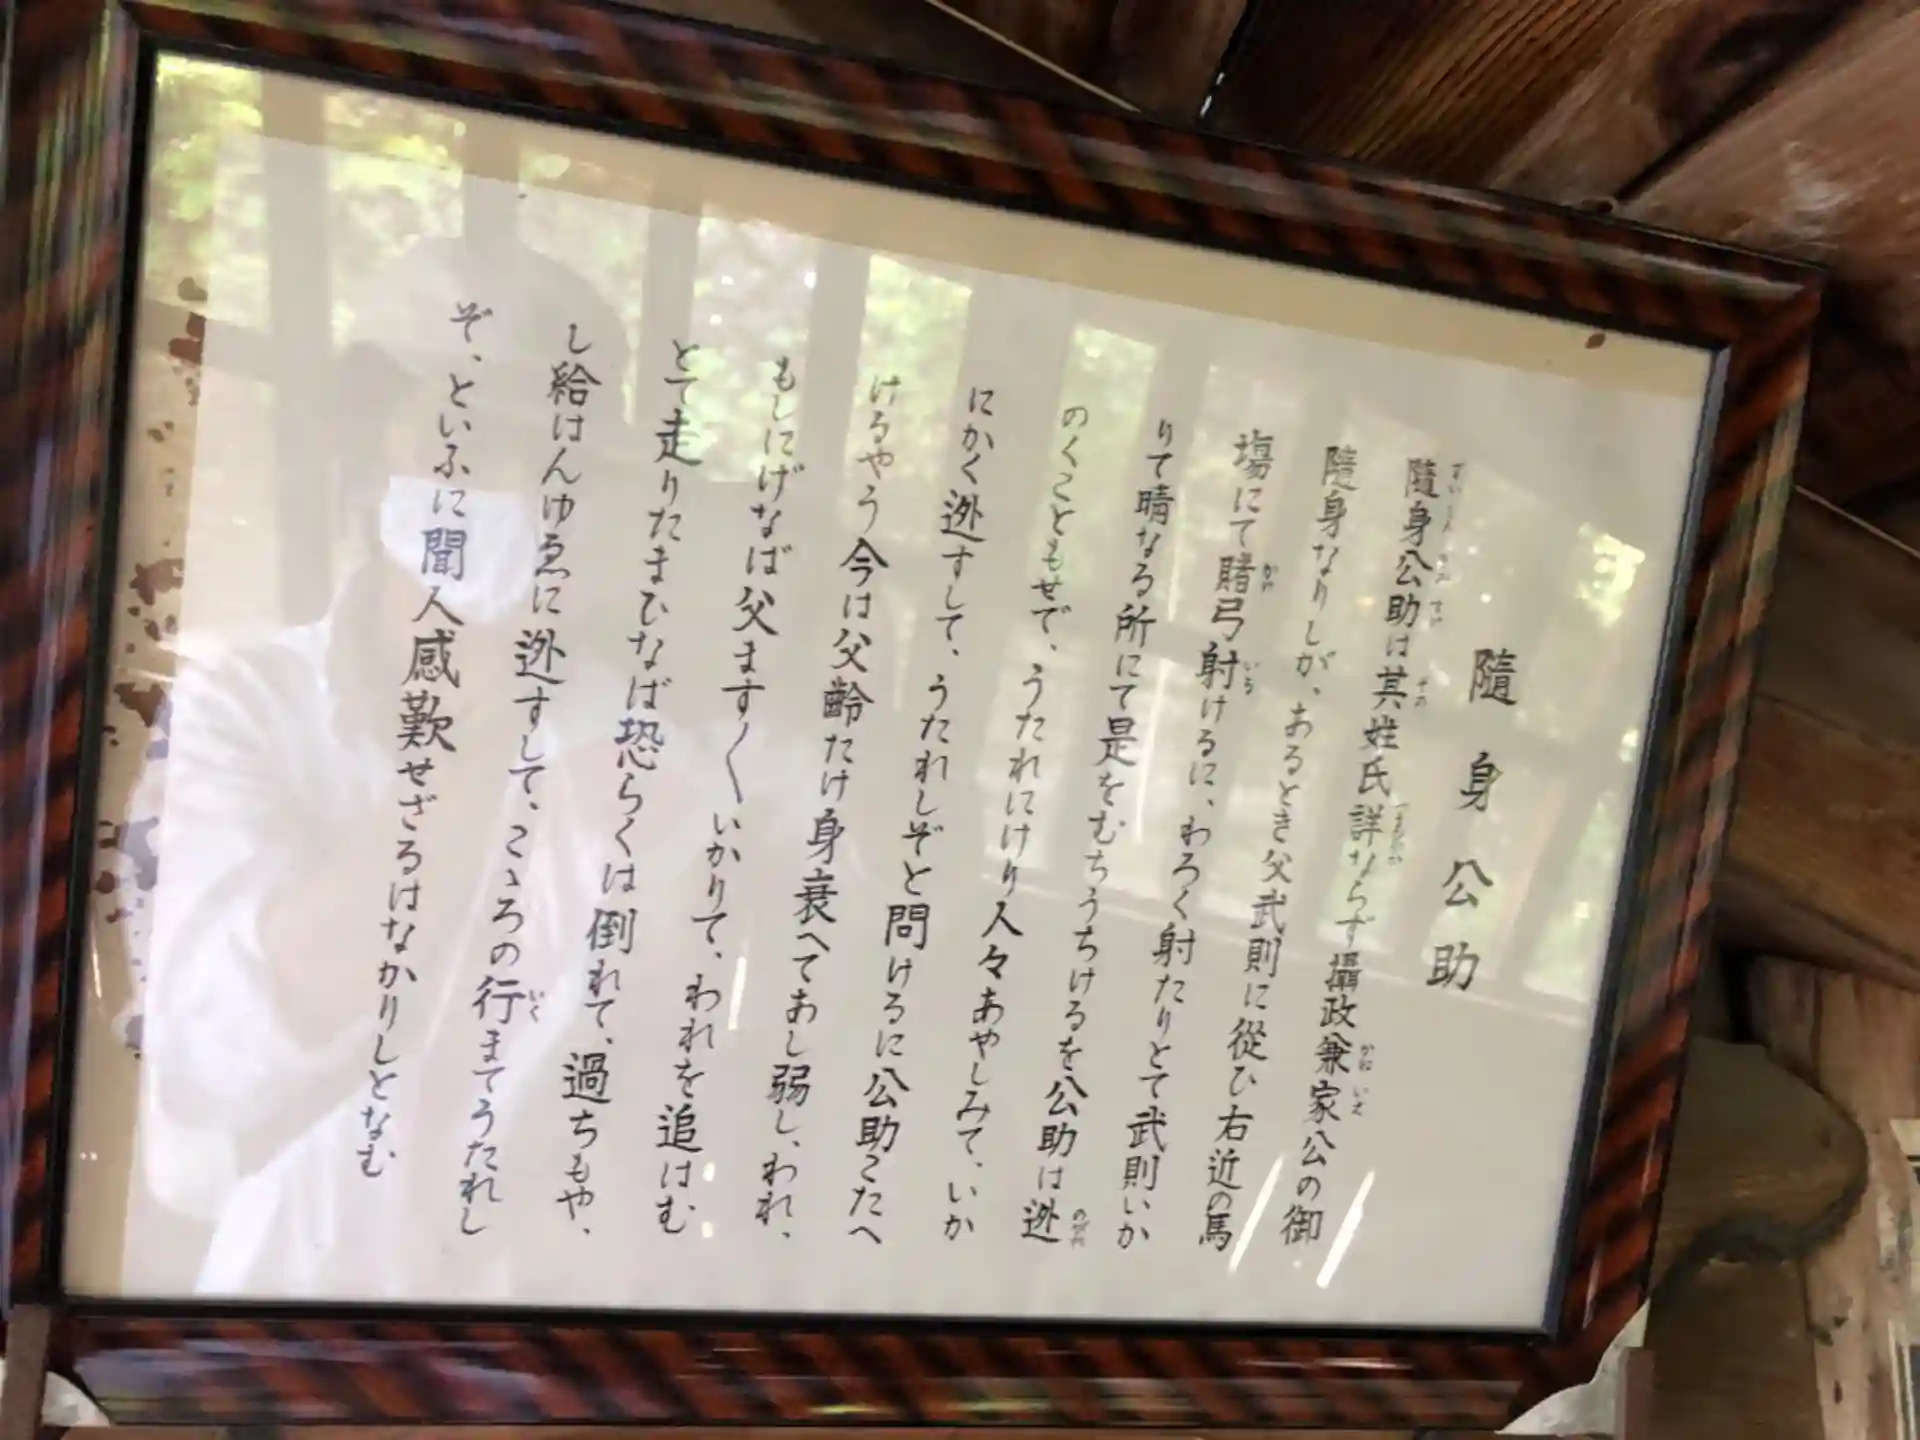 隨身公助
隨身公助は其姓氏詳ならず攝政兼家公の御
隨身なりしが、あるとき父武則に從ひ右近の馬
場にて賭弓射けるに、わろく射たりとて武則いか
りて晴なる所にて是をむちうちけるを公助は迯
のくこともせで、うたれにけり人々あやしみて、いか
にかく迯すして、うたれしぞと問けるに公助こたへ
けるやう今は父齢たけ身衰へてあし弱し、われ、
もしにげなば父ます〱いかりて、われを追はむ
とて走りたまひなば恐らくは倒れて、過ちもや、
し給はんゆゑに迯すして、こゝろの行まてうたれし
ぞ、といふに聞人感歎せざるはなかりしとなむ